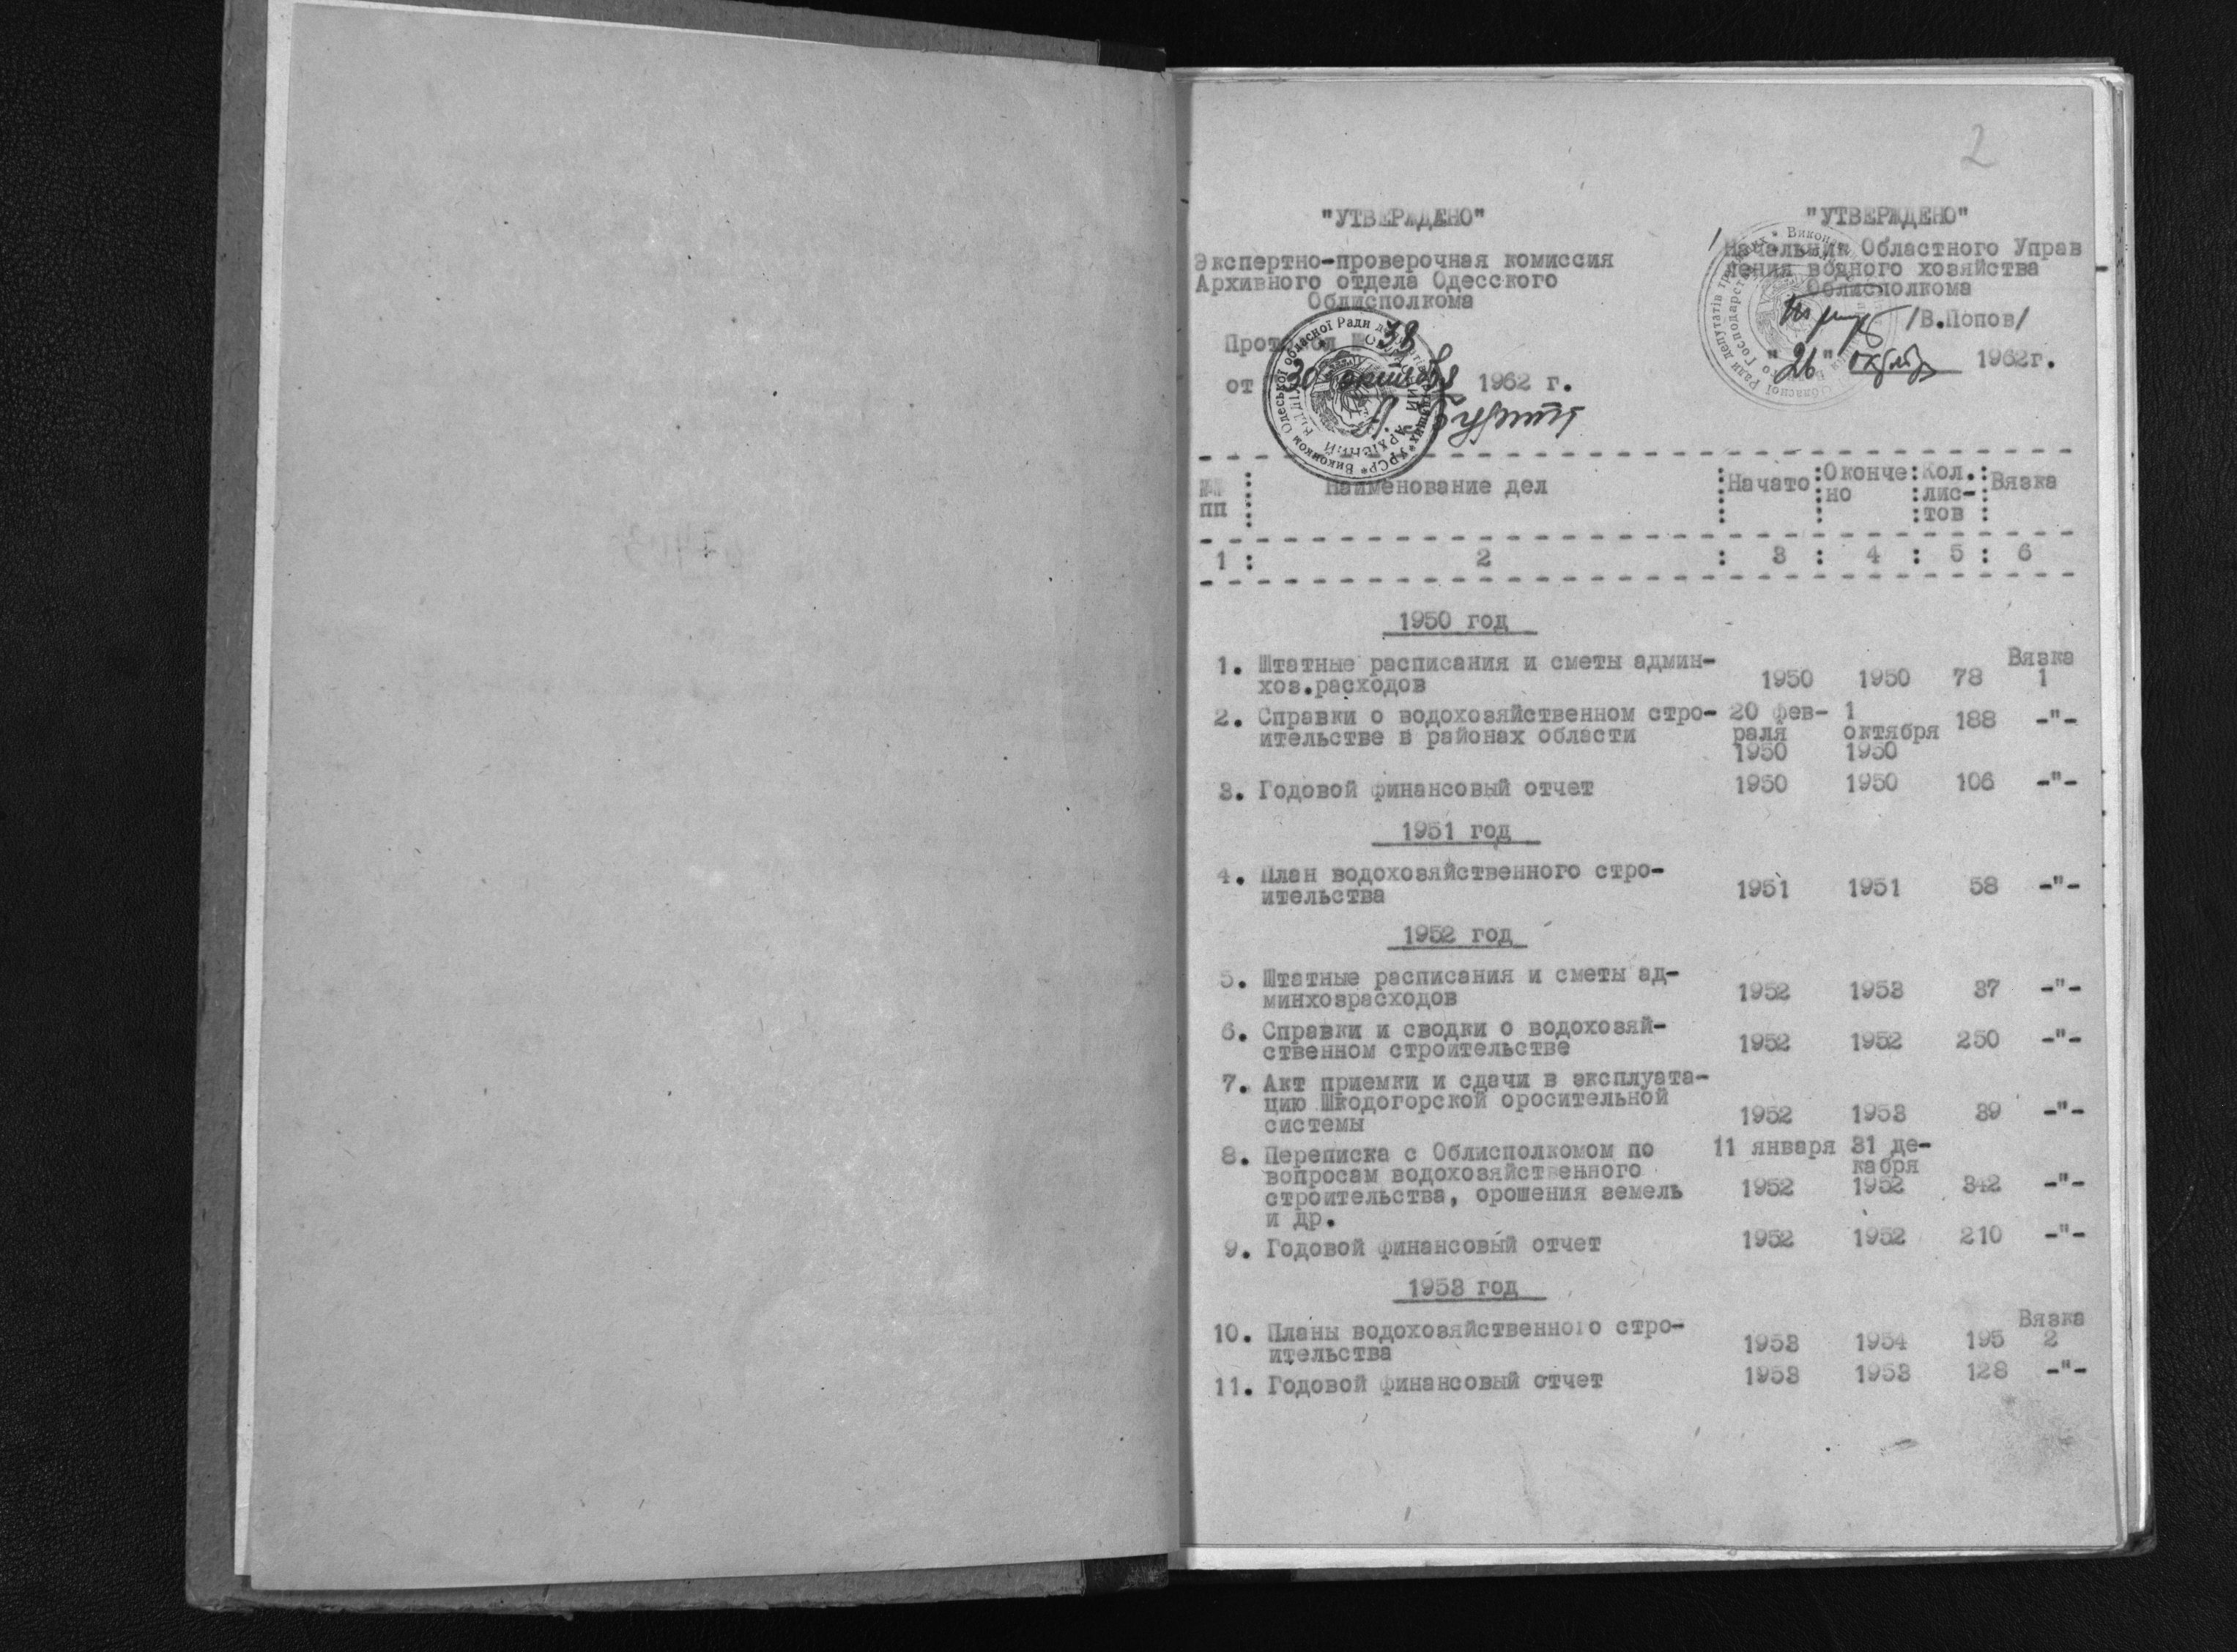 2
"УТВЕРЖДЕНО"
Экспертно-проверочная комиссия
Архивного отдела Одесского
Облисполкома
Протокол № 38
от 30 октября 1962 г.
"УТВЕРЖДЕНО"
Начальник Областного Управ
ления водного хозяйства
Облисполкома
/В.Попов/
"26" октября 1962г.
№№ пп : Наименование дел : Начато : Окончено : Кол. листов : Вязка
1 : 2 : 3 : 4 : 5 : 6
1950 год
1. Штатные расписания и сметы админ-
хоз.расходов 1950 1950 78 Вязка 1
2. Справки о водохозяйственном стро- 20 фев- 1
ительстве в районах области раля октября 188 -"-
1950 1950
3. Годовой финансовый отчет 1950 1950 106 -"-
1951 год
4. План водохозяйственного стро-
ительства 1951 1951 58 -"-
1952 год
5. Штатные расписания и сметы ад-
минхозрасходов 1952 1953 37 -"-
6. Справки и сводки о водохозяй-
ственном строительстве 1952 1952 250 -"-
7. Акт приемки и сдачи в эксплуата-
цию Шкодогорской оросительной
системы 1952 1953 39 -"-
8. Переписка с Облисполкомом по 11 января 31 де-
вопросам водохозяйственного кабря
строительства, орошения земель 1952 1952 342 -"-
и др.
9. Годовой финансовый отчет 1952 1952 210 -"-
1953 год
10. Планы водохозяйственного стро- Вязка
ительства 1953 1954 195 2
11. Годовой финансовый отчет 1953 1953 128 -"-